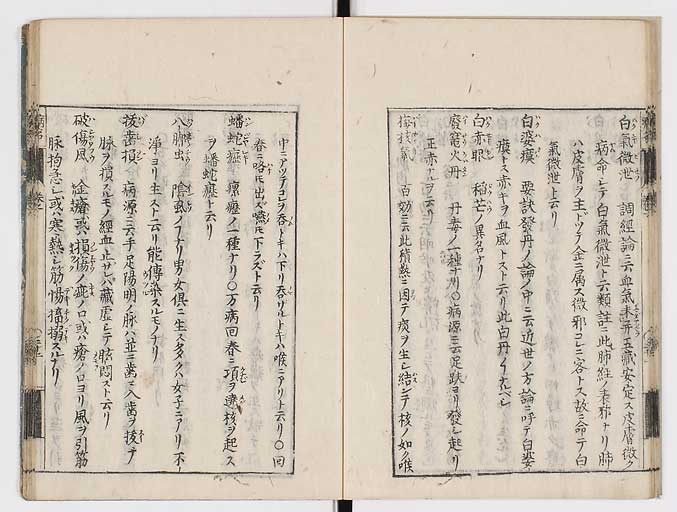 白氣微泄 調經論ニ云血氣未并五藏安定ス皮膚微ク
病命レテ白氣微泄ト云類註ニ此肺經ノ表邪ナリ肺
ハ皮膚ヲ主ドツテ金ニ属ス微邪コレニ客トス故ニ命テ白
氣微泄ト云リ
白婆瘼 要訣發丹ノ論ノ中ニ云近世ノ方論ニ呼テ白婆
瘼トス赤キヲ血風トスト云リ此白丹ノ
白赤眼 稲芒ノ異名ナリ
廢竈火丹 丹毒ノ一種ナリ○病源ニ云足趺ヨリ發レ起リ
正赤ナルヲ云リ
梅核氣 百効ニ云此積熱ニ因テ痰ヲ生レ結レテ核ノ如ク喉
中ニアツテコレヲ呑トキハ下リ呑ザルトキハ喉ニアリト云リ○回
春ニ咯トモ出ズ嚥トモ下ラズト云リ
蟠蛇癧 瘰癧ノ一種ナリ○万病回春ニ項ヲ遶核ヲ起ス
ヲ蟠蛇癧ト云リ
八脚虫 陰虱ノナリ男女倶ニ生ス多ク女子ニアリ不
淨ヨリ生スト云リ能傳染スルモノナリ
拔齒損 病源ニ云手足陽明ノ脉ハ並ニ齒ニ入齒ヲ拔テ
脉ヲ損スモノ經血止サレハ藏虚レテ悶スト云リ
破傷風 金瘡或ハ損傷ノ瘡ノ口或ハ瘡ノ口ヨリ風ヲ引筋
脉拘急レ或ハ寒熱レ筋惕搐搦スルナリ